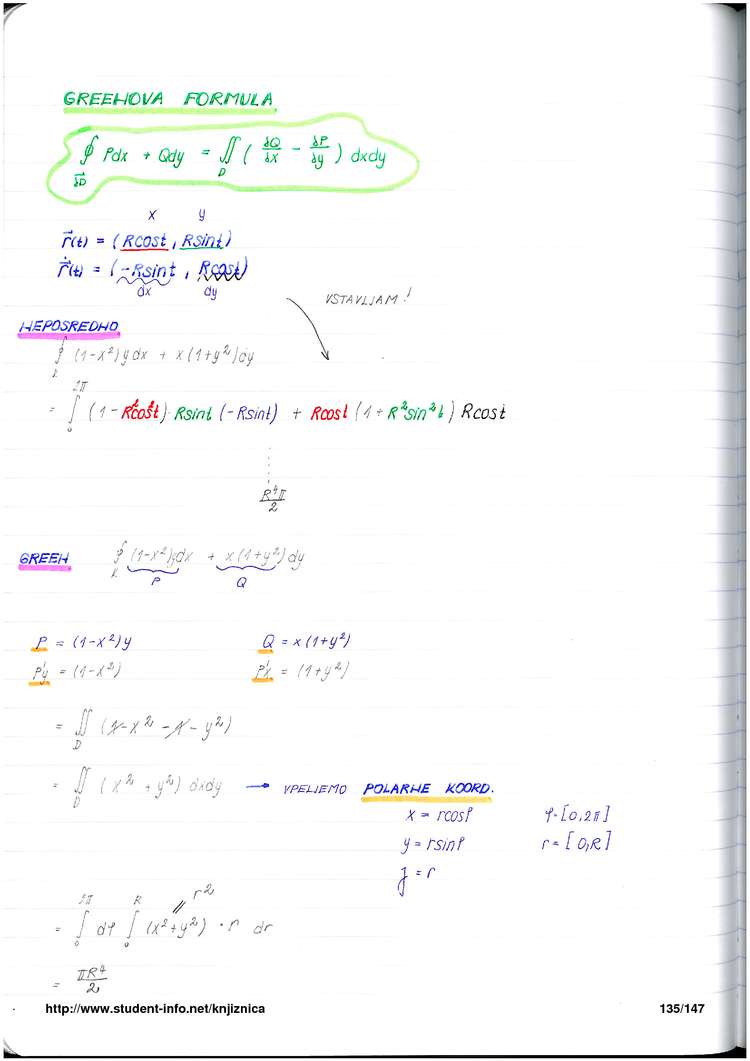 GREENOVA FORMULA
∮ Pdx + Qdy = ∬ ( ∂Q/∂x − ∂P/∂y ) dxdy
∂D D
x y
r(t) = (Rcost, Rsint)
ṙ(t) = (−Rsint, Rcost)
dx dy
VSTAVLJAM!
NEPOSREDNO
∮ (1-x²)ydx + x(1+y²)dy
K
= ∫₀^2π (1 − R²cos²t)·Rsint (−Rsint) + Rcost (1 + R²sin²t) Rcost
R⁴π/2
GREEN ∮ (1-x²)ydx + x(1+y²)dy
K P Q
P = (1-x²)y Q = x(1+y²)
P'y = (1-x²) P'x = (1+y²)
= ∬ (1-x² -1-y²)
D
= ∬ (x² + y²) dxdy → VPELJEMO POLARNE KOORD.
D
x = rcosφ φ=[0,2π]
y = rsinφ r=[0,R]
J = r
r²
= ∫₀^2π dφ ∫₀^R (x²+y²) · r dr
= πR⁴/2
http://www.student-info.net/knjiznica 135/147